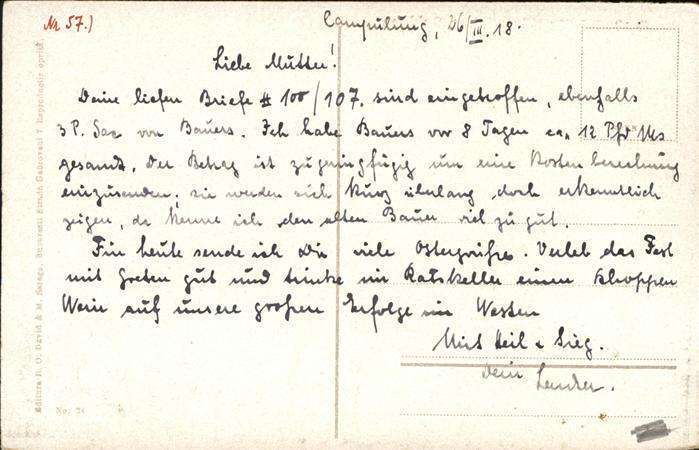 Nr 57.)
Campulung, 26/III. 18.
Liebe Mutter!
Deine lieben Briefe # 100/107. sind eingetroffen, ebenfalls
3 P. von Bauers. Ich habe Bauers vor 8 Tagen ca. 12 Pfd
gesandt. Der Betrag ist zu geringfügig um eine Kosten berechnung
einzusenden; sie werden sich kurz überlang doch erkenntlich
zeigen, da kenne ich den alten Bauer viel zu gut.
Für heute sende ich Dir viele Ostergrüsse. Verleb das Fest
mit Greten gut und trinke im Ratskeller einen Schoppen
Wein auf unsere grossen Erfolge im Westen
Mit Heil & Sieg.
Dein
Editura D. O. David & M. Saraga, Bucuresti
No. 74